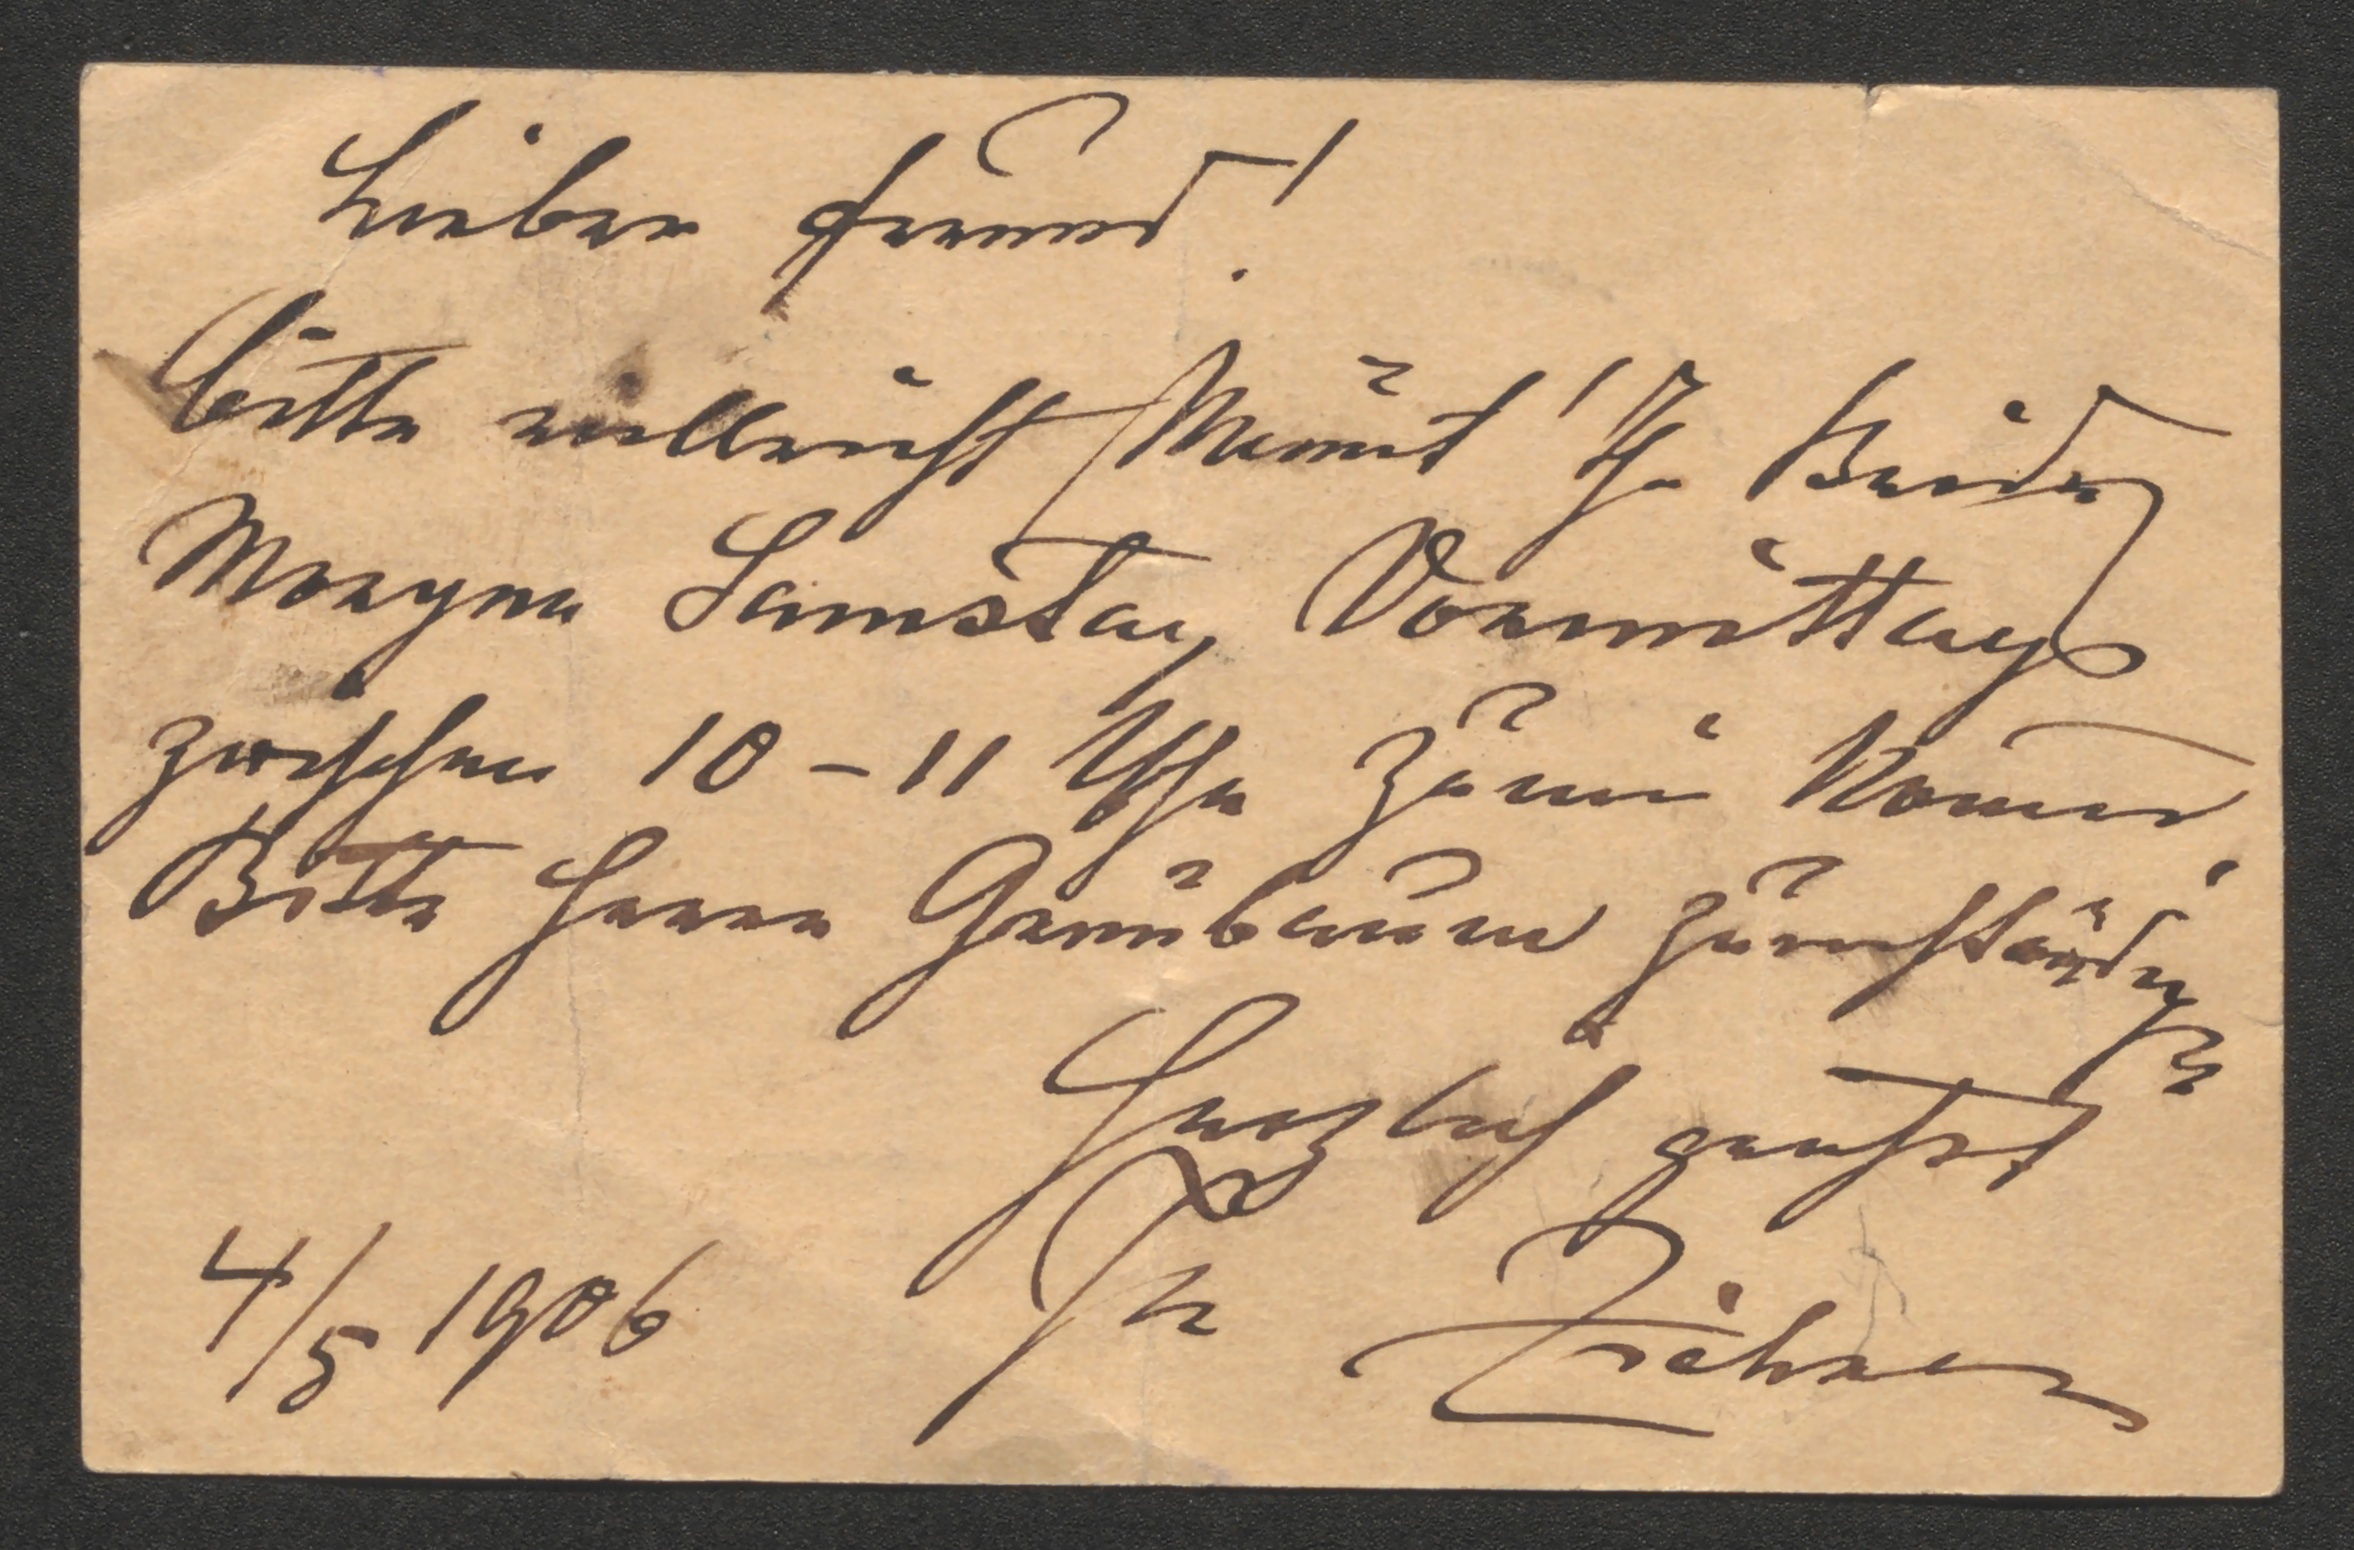 Lieber Freund!
bitte vielleicht kommt Ihr Beide
Morgen Samstag Vormittags
zwischen 10 – 11 Uhr zu mir
Bitte Herrn Grünbaum zu verständigen
Herzlichst grüßt
Ihr Ziehrer
4/5 1906